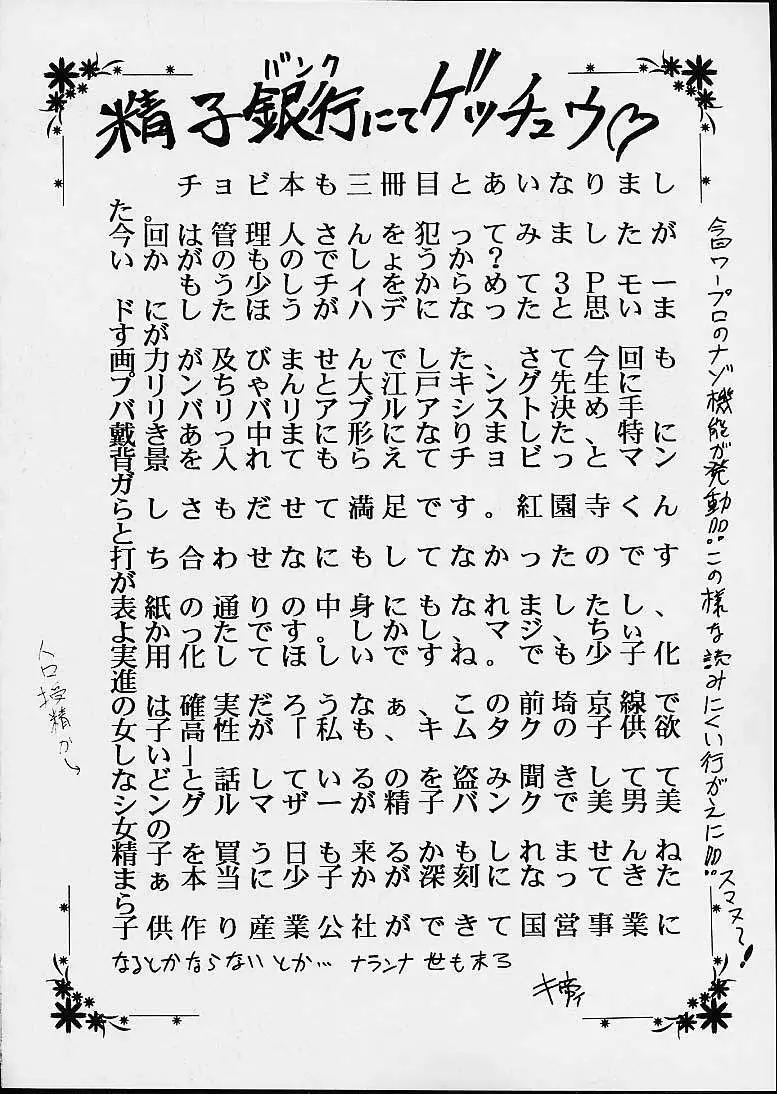 精子銀行にてゲッチュウ♡
バンク
チョビ本も三冊目とあいなりまし
た。
今回は管理人さんを犯ってみましたが
いかがのものでしょうか?
もう少しチィをからめて3Pモー
ドにしたほうがハデになったと思いま
すが
画力が及びませんでした、さて今回も
プリンちゃんと大江戸キシング先生に
バリバリリアブルアシスト決め手
戴きあっ中まに形になりました、特に
背景を入れてもらえてチョビっとマン
ガらしさもだせて満足です。紅園寺くん
と打ち合わせなにもしてなかったのです
が
表紙の通りの中身にもなれましたし、
よかったです。しかし、マジでちぃ化
実用化してほしいですね。も少子化
進
のは確実だろうなぁ、この前埼京線で
女子高性が「私も、キムタクの子供欲
しい」と話してるのを盗み聞きして
などシングルマザーが精子バンクで美男美
女の
精子を買う日も来るかもしれませんね
まぁ本当に少子化が深刻になってきた
ら
子供作り産業公社ができて国営事業に
なるとかならないとか… ナランナ 世も末ろ
今回ワープロのナゾ機能が発動!!!この様な読みにくい行がえに!!!スマヌ〜!
人口授精かし